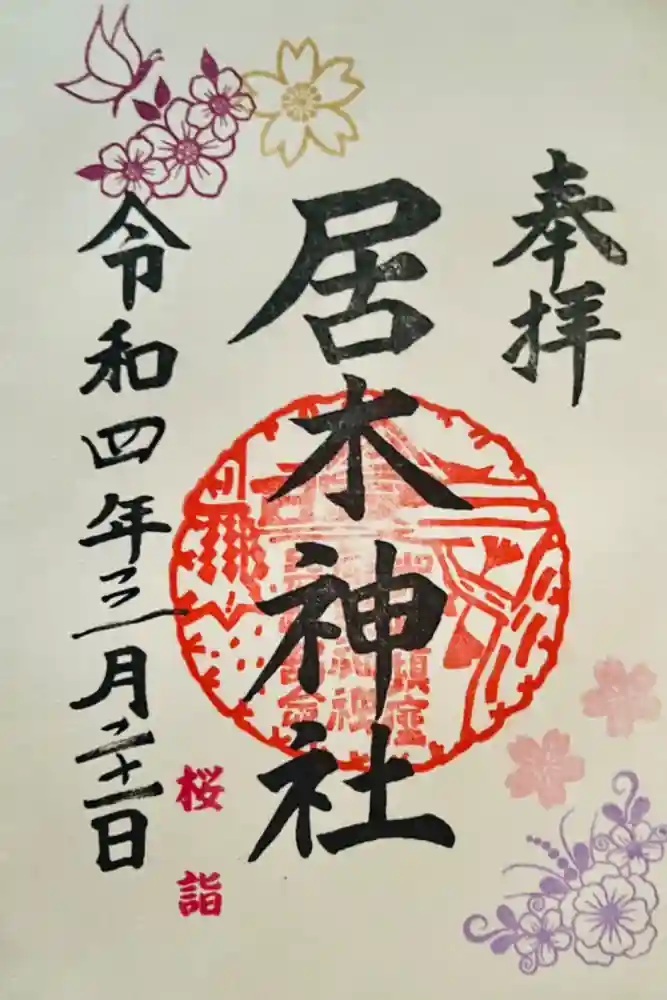 奉拝
居木神社
令和四年三月二十一日
桜詣